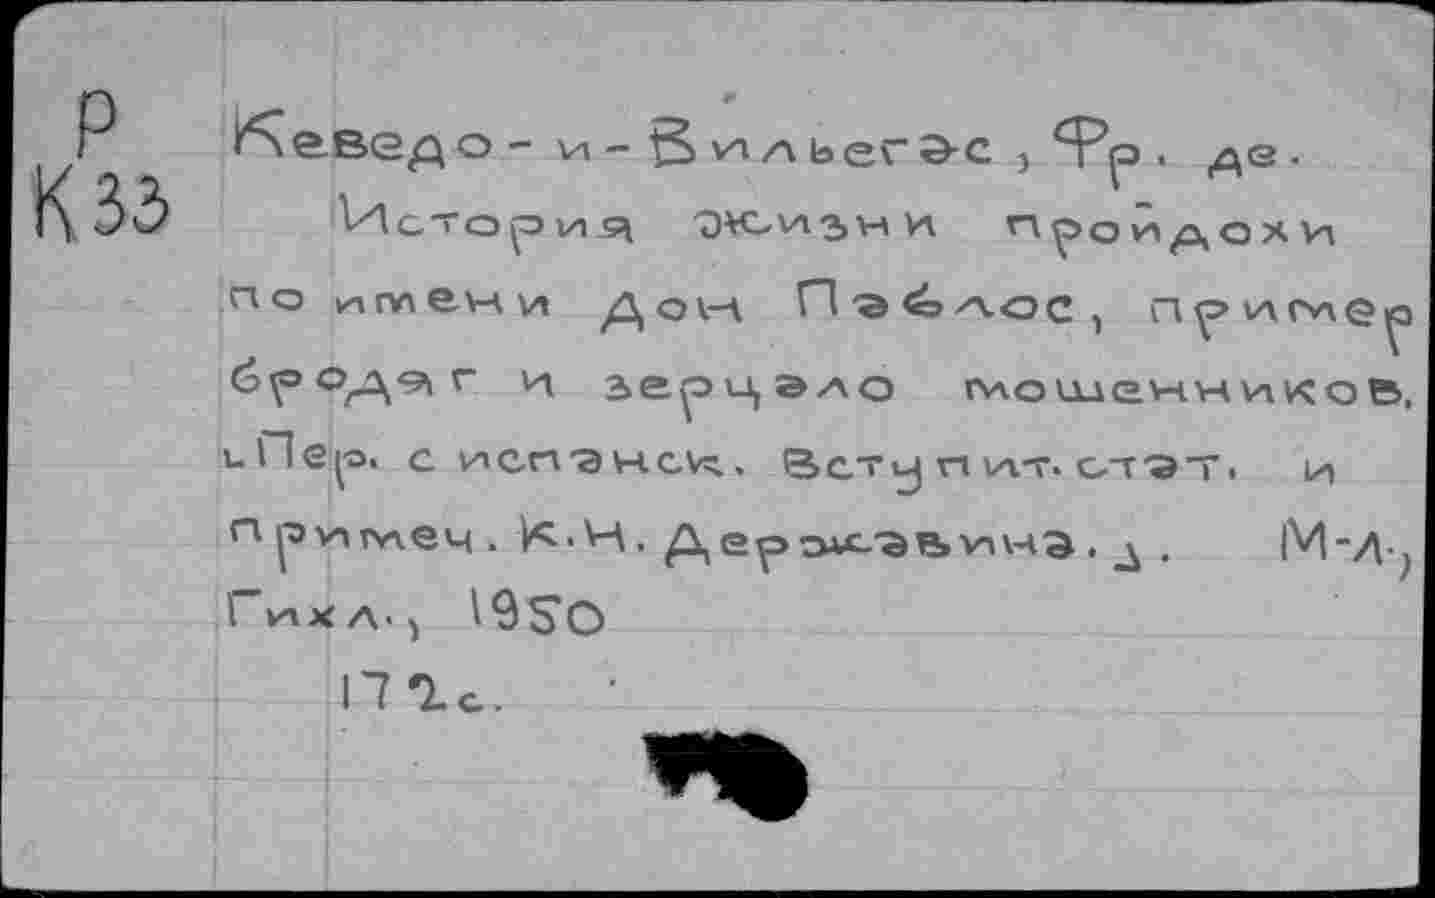 Р
К33
Кеведо-и-Вильегас, Фр. де.
История жизни пройдохи
по имени Дон Паблос, пример
бродяг и зерцало мошенников.
[Пер. с испанск. Вступит. стат. и
примеч. К.Н. Державина.] . М-Л.,
Гихл., 1950
172 с.